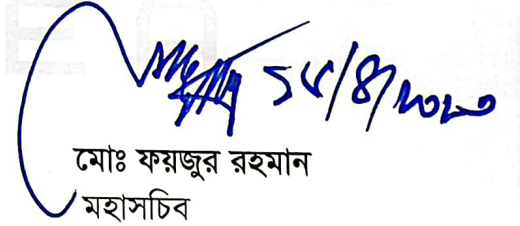 ১৮/৪/২০২৩
মোঃ ফয়জুর রহমান
মহাসচিব